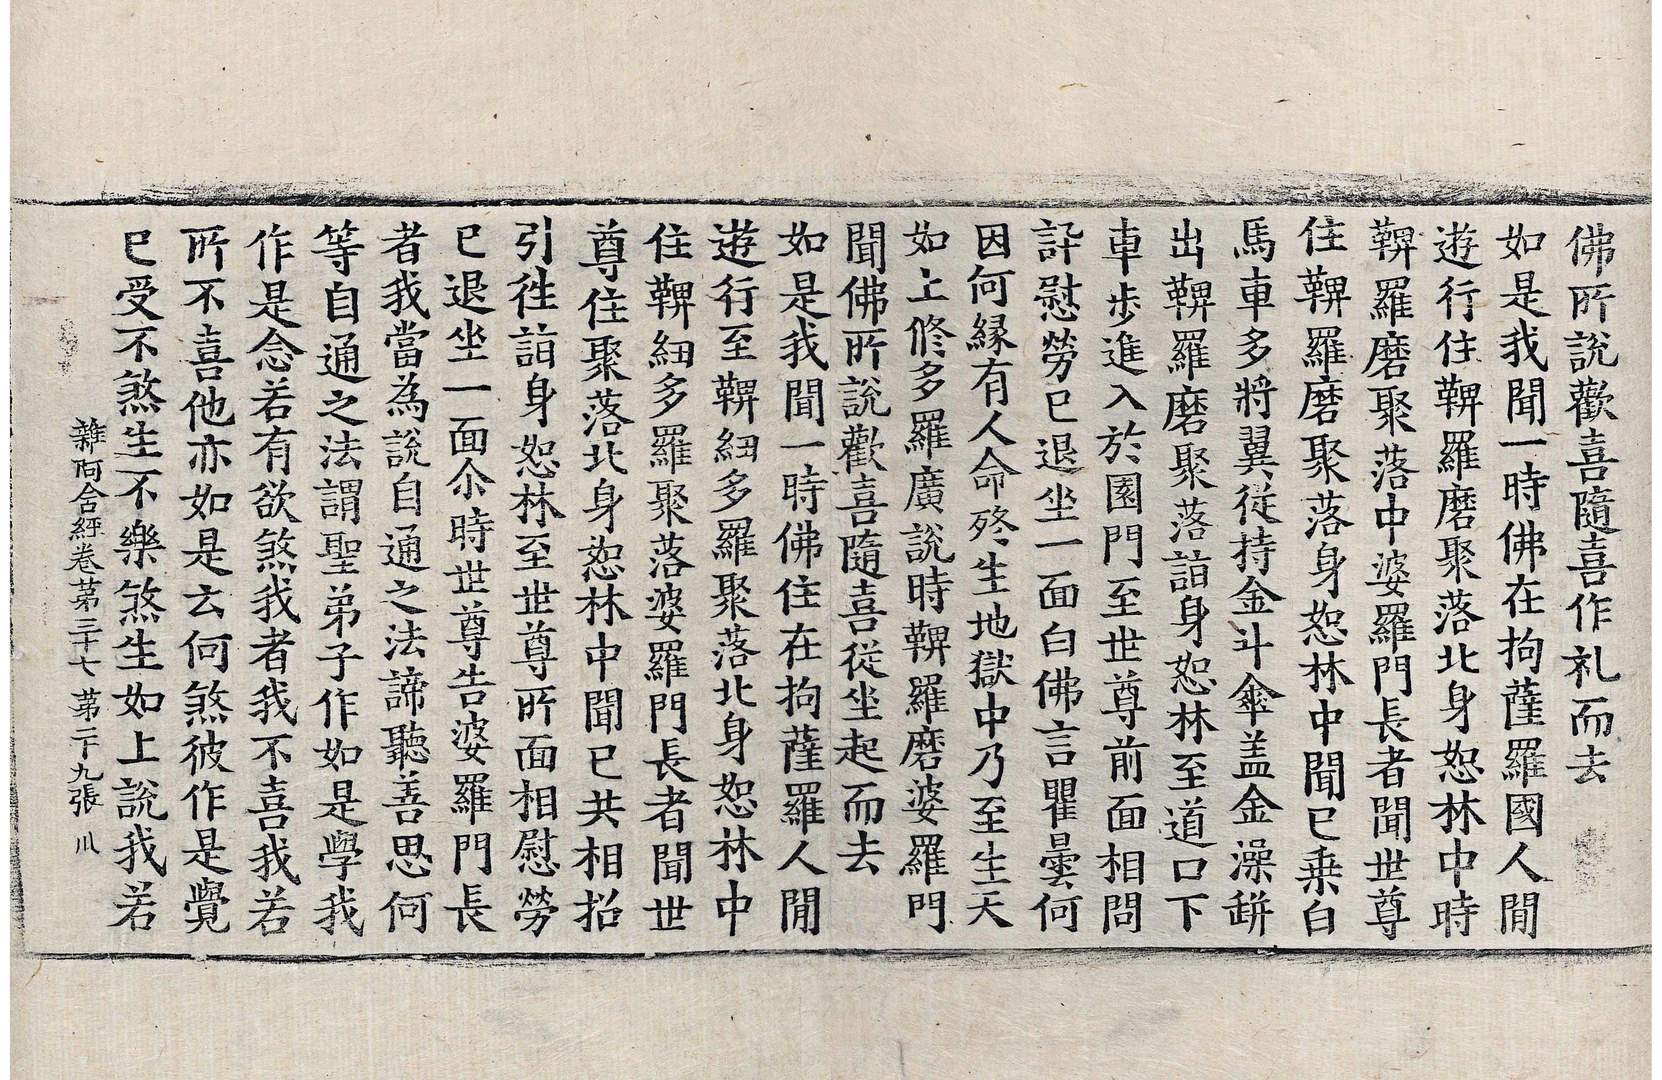 佛所說歡喜隨喜作礼而去
如是我聞一時佛在拘薩羅國人閒
遊行住鞞羅磨聚落北身恕林中時
鞞羅磨聚落中婆羅門長者聞世尊
住鞞羅磨聚落身恕林中聞已乗白
馬車多將翼從持金斗傘盖金澡缾
出鞞羅磨聚落詣身恕林至道口下
車步進入於園門至世尊前面相問
訐慰勞已退坐一面白佛言瞿曇何
因何縁有人命終生地獄中乃至生天
如上修多羅廣說時鞞羅磨婆羅門
聞佛所說歡喜隨喜從坐起而去
如是我聞一時佛住在拘薩羅人閒
遊行至鞞紐多羅聚落北身恕林中
住鞞紐多羅聚落婆羅門長者聞世
尊住聚落北身恕林中聞已共相招
引往詣身恕林至世尊所面相慰勞
已退坐一面尒時世尊告婆羅門長
者我當為說自通之法諦聽善思何
等自通之法謂聖弟子作如是學我
作是念若有欲煞我者我不喜我若
所不喜他亦如是云何煞彼作是覺
已受不煞生不樂煞生如上說我若
雜阿含經卷第三十七 第二十九張 川